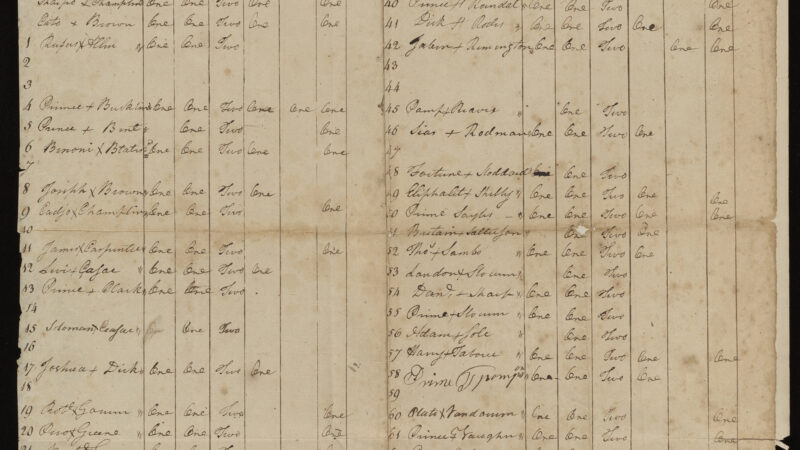 Sharpo x Champlin One One Two One One
Cato x Brown One One Two One One
1 Rufus x Allin " One One Two
2
3
4 Prince x Bucklin One One Two One One One
5 Prince x Bent " One Two One
6 Binoni x One One Two One One
7
8 Joseph x Brown One One Two One
9 x Champlin One One Two One
10
11 James x Carpenter One One Two One
12 Levi x Casar " One One Two One
13 Prince x Clark " One One Two
14
15 Soloman x Ceasar " One Two
16
17 Joshua x Dick " One One Two One
18
19 x " One One Two One
20 x Greene " One One Two One
21
40 Prince x One One Two One
41 Dick x " One One Two One One
42 x Remington One One Two One One
43
44
45 x " " One Two
46 x Rodman One One Two One
47
48 Fortune x Stoddard One Two
49 Eliphalet x " One One Two One One
50 Prime Sayles " One One Two One One
51 Britain x " One Two One
52 Thos x Sambo " One One Two One
53 London x Slocum " One Two
54 Dan x Sharp " One One Two
55 Prime x Slocum " One One Two
56 Adam x Sole " One Two
57 Harry x " One One Two One One
58 Prime One One Two One
59
60 Plato x Vandorum " One One Two
61 Prince x Vaughn " One One Two One